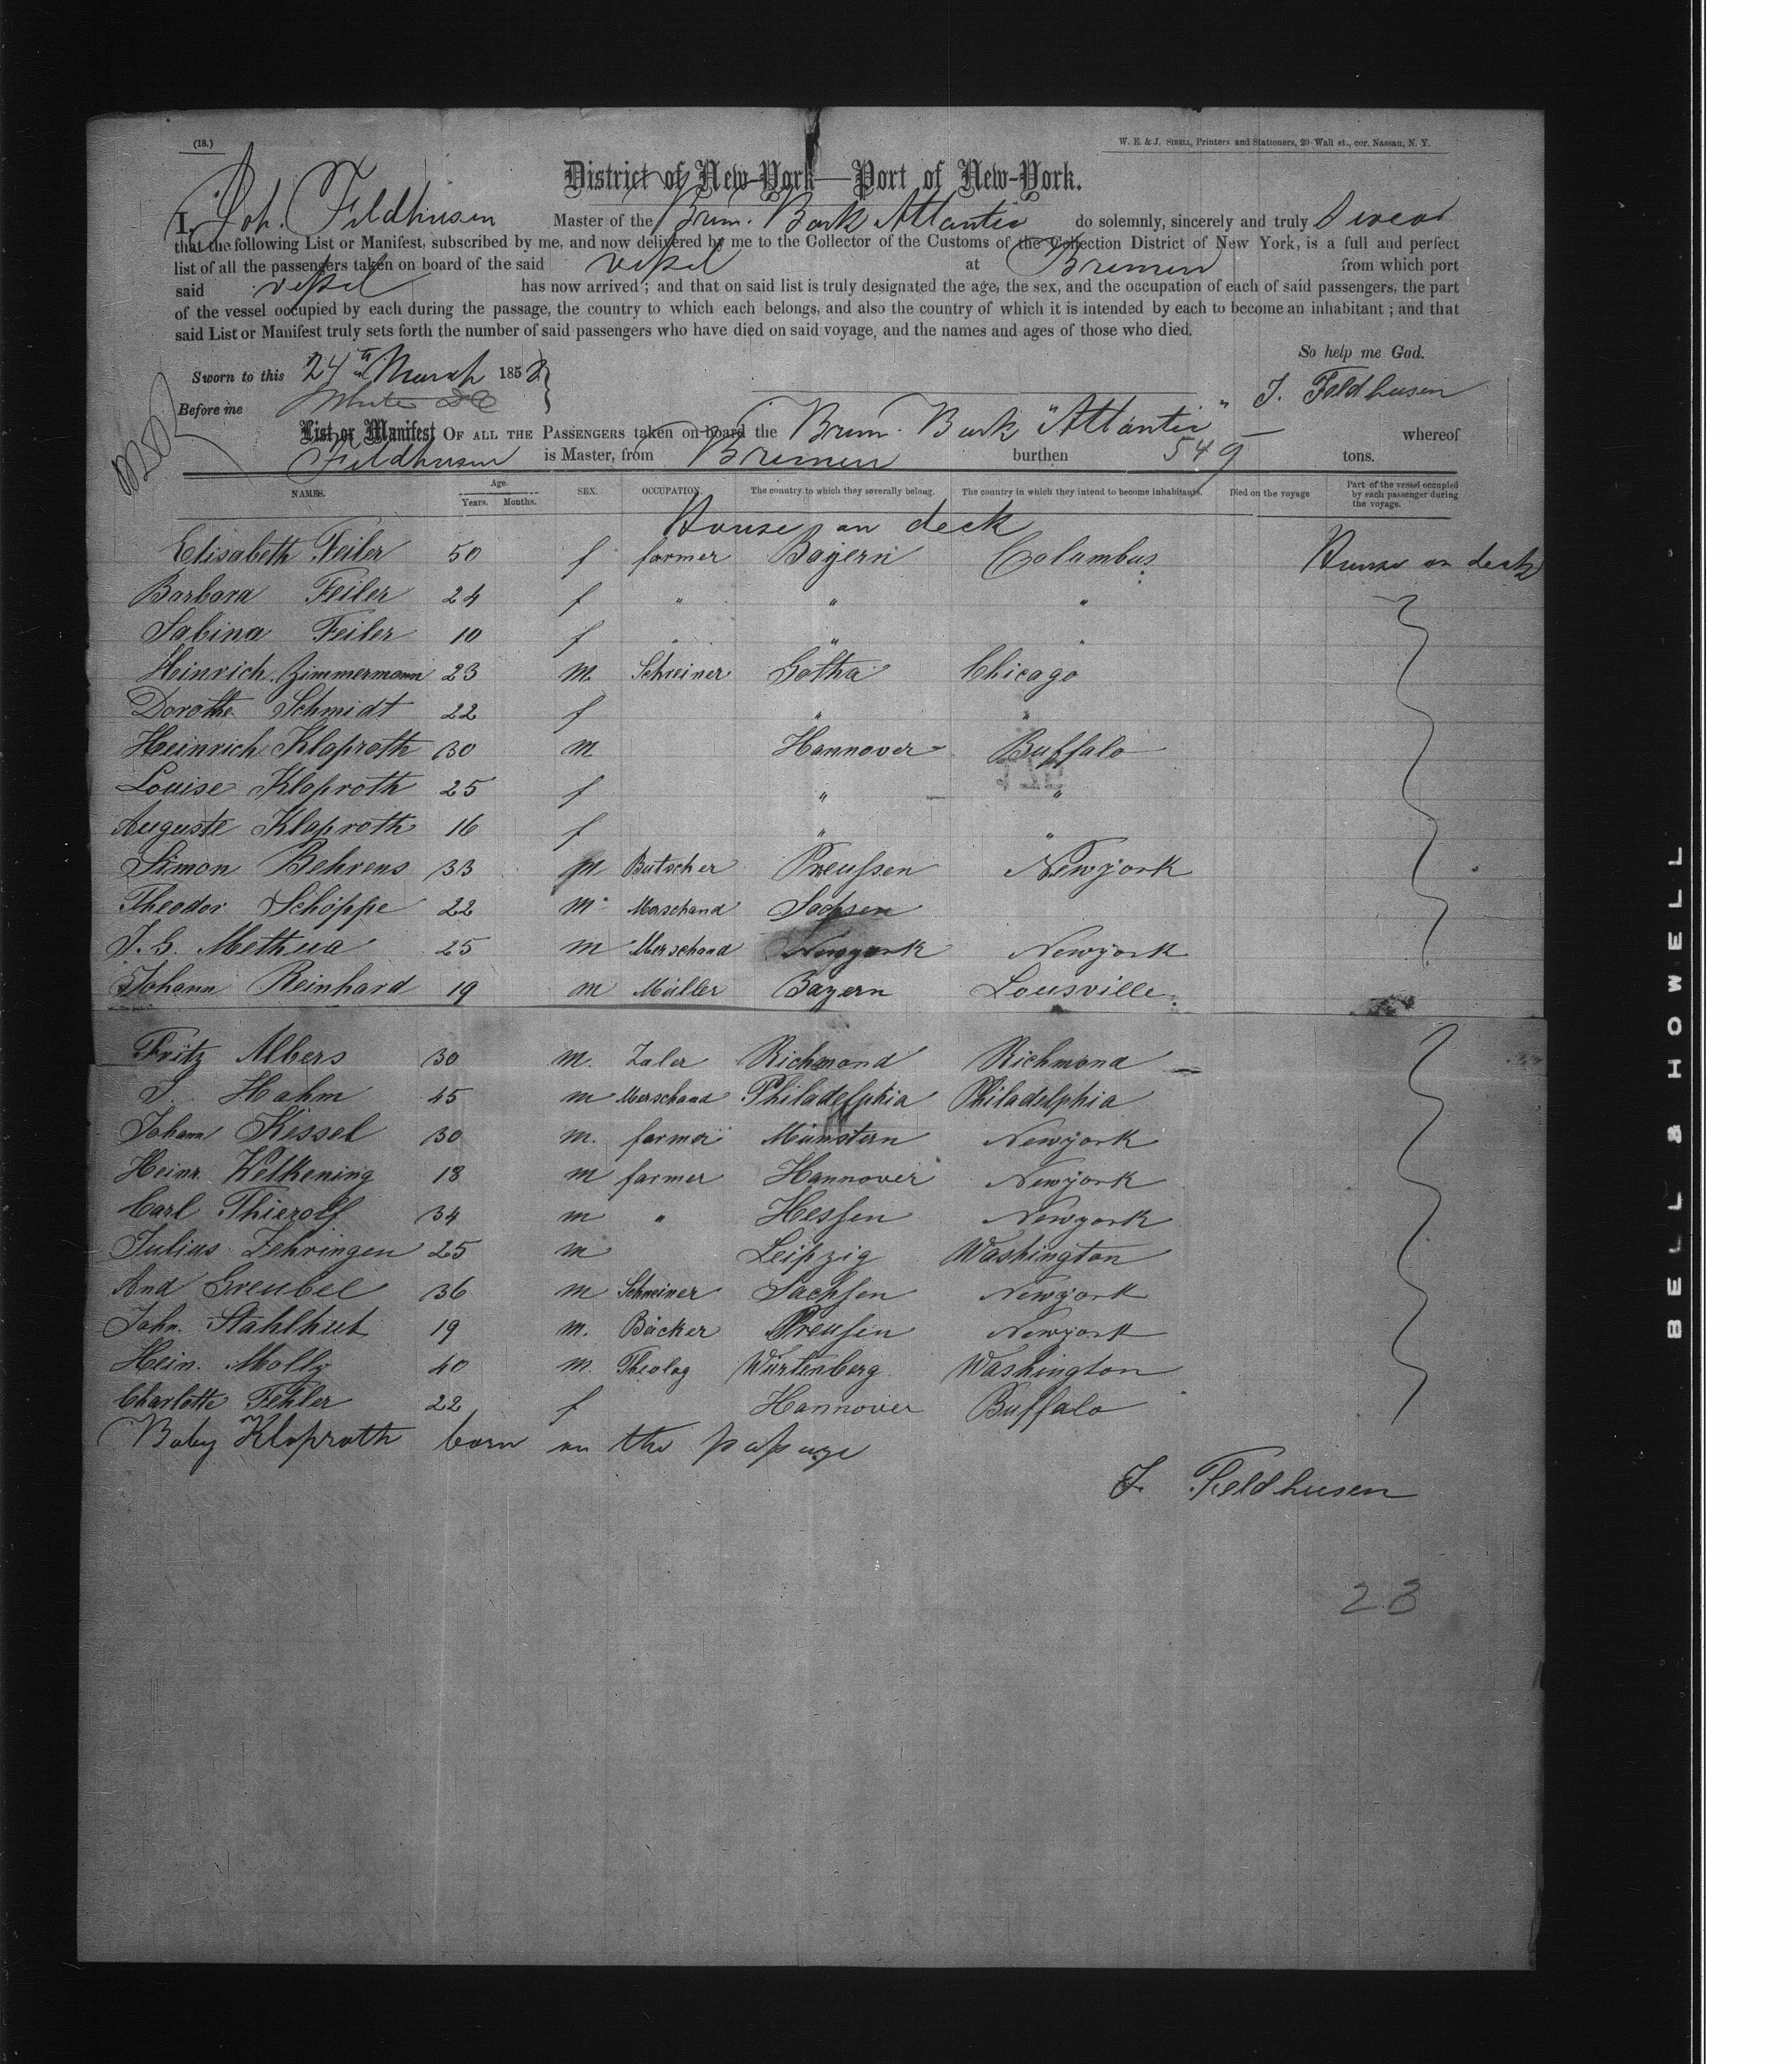 (18.)
W. E. & J. Sibell, Printers and Stationers, 20 Wall st., cor. Nassau, N. Y.
District of New-York—Port of New-York.
I, Joh. Feldhusen Master of the Brem. Bark Atlantic do solemnly, sincerely and truly swear
that the following List or Manifest, subscribed by me, and now delivered by me to the Collector of the Customs of the Collection District of New York, is a full and perfect
list of all the passengers taken on board of the said vessel at Bremen from which port
said vessel has now arrived; and that on said list is truly designated the age, the sex, and the occupation of each of said passengers, the part
of the vessel occupied by each during the passage, the country to which each belongs, and also the country of which it is intended by each to become an inhabitant; and that
said List or Manifest truly sets forth the number of said passengers who have died on said voyage, and the names and ages of those who died.
So help me God.
Sworn to this 24th March 1858
J. Feldhusen
Before me
List or Manifest OF ALL THE PASSENGERS taken on board the Brem. Bark "Atlantic" whereof
Feldhusen is Master, from Bremen burthen 549 tons.
NAMES. Age. Years. Months. SEX. OCCUPATION. The country to which they severally belong. The country in which they intend to become inhabitants. Died on the voyage Part of the vessel occupied by each passenger during the voyage.
House on deck
Elisabeth Feiler 50 f farmer Bayern Columbus House on deck
Barbara Feiler 24 f " " "
Sabina Feiler 10 f " " "
Heinrich Zimmermann 23 m. Schreiner Gotha Chicago
Dorothe Schmidt 22 f " "
Heinrich Klaproth 30 m Hannover Buffalo
Louise Klaproth 25 f " "
Auguste Klaproth 16 f " "
Simon Behrens 33 m Butscher Preussen Newyork
Theodor Schöppe 22 m Merschand Sachsen
J. G. Methua 25 m Merschand Newyork Newyork
Johann Reinhard 19 m Müller Bayern Lousville
Fritz Albers 30 m. Taler Richmond Richmond
J. Hahm 45 m Merschand Philadelphia Philadelphia
Johann Kissel 30 m. farmer Münstern Newyork
Heinr. Welkening 18 m farmer Hannover Newyork
Carl Thierolf 34 m " Hessen Newyork
Julius Zehringen 25 m Leipzig Washington
And Greubel 36 m Schreiner Sachsen Newyork
Joh. Stahlhut 19 m. Bäcker Preusen Newyork
Hein. Moltz 40 m. Theolog Würtenberg Washington
Charlotte Fehler 22 f Hannover Buffalo
Baby Klaproth born on the passage
J. Feldhusen
23
BELL & HOWELL